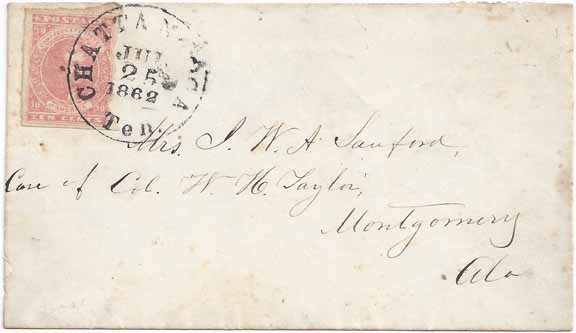 POSTAGE
CHATTANOOGA
JUL
25
1862
Ten.
TEN CENTS
Mrs. J. W. A. Sanford,
Care of Col. W. H. Taylor,
Montgomery
Ala